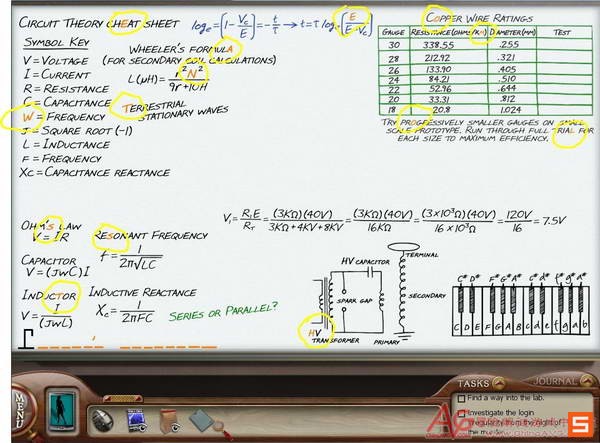 CIRCUIT THEORY CHEAT SHEET
SYMBOL KEY
V = VOLTAGE
I = CURRENT
R = RESISTANCE
C = CAPACITANCE
W = FREQUENCY
J = SQUARE ROOT (-1)
L = INDUCTANCE
F = FREQUENCY
XC = CAPACITANCE REACTANCE
loge = [1 - Vc/E] = -t/τ → t = τ loge [E/(E-Vc)]
WHEELER'S FORMULA
(FOR SECONDARY COIL CALCULATIONS)
L (µH) = r²N²/(9r + 10H)
TERRESTRIAL
STATIONARY WAVES
COPPER WIRE RATINGS
GAUGE RESISTANCE (OHMS/KM) DIAMETER (MM) TEST
30 338.55 .255
28 212.92 .321
26 133.90 .405
24 84.21 .510
22 52.96 .644
20 33.31 .812
18 20.8 1.024
TRY PROGRESSIVELY SMALLER GAUGES ON SMALL
SCALE PROTOTYPE. RUN THROUGH FULL TRIAL FOR
EACH SIZE TO MAXIMUM EFFICIENCY.
V₁ = R₁E/RT = (3KΩ)(40V)/(3KΩ + 4KV + 8KV) = (3KΩ)(40V)/16KΩ = (3×10³Ω)(40V)/(16×10³Ω) = 120V/16 = 7.5V
OHM'S LAW
V = IR
RESONANT FREQUENCY
f = 1/(2π√LC)
CAPACITOR
V = (JWC)I
INDUCTOR
V = I/(JWL)
INDUCTIVE REACTANCE
Xc = 1/(2πFC)
SERIES OR PARALLEL?
HV CAPACITOR
TERMINAL
SPARK GAP
SECONDARY
HV
TRANSFORMER
PRIMARY
C# D# F# G# A# c# d# f# g# a#
C D E F G A B c d e f g a b
MENU
TASKS
JOURNAL
Find a way into the lab.
Investigate the login
irregularity from the night of